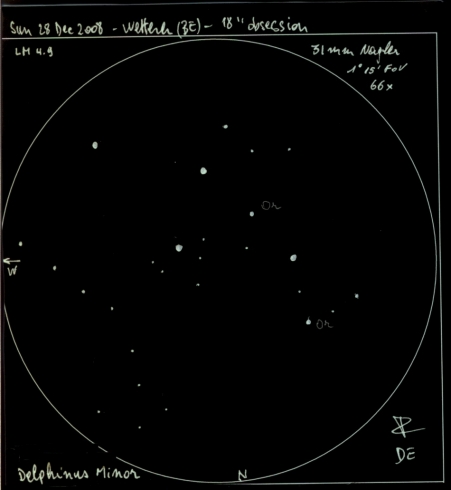 Sun 28 Dec 2008 - Wetteren (BE) - 18" obsession
LM 4.9
31 mm Nagler
1° 15' FoV
66x
Or
W
Or
DE
Delphinus Minor
N